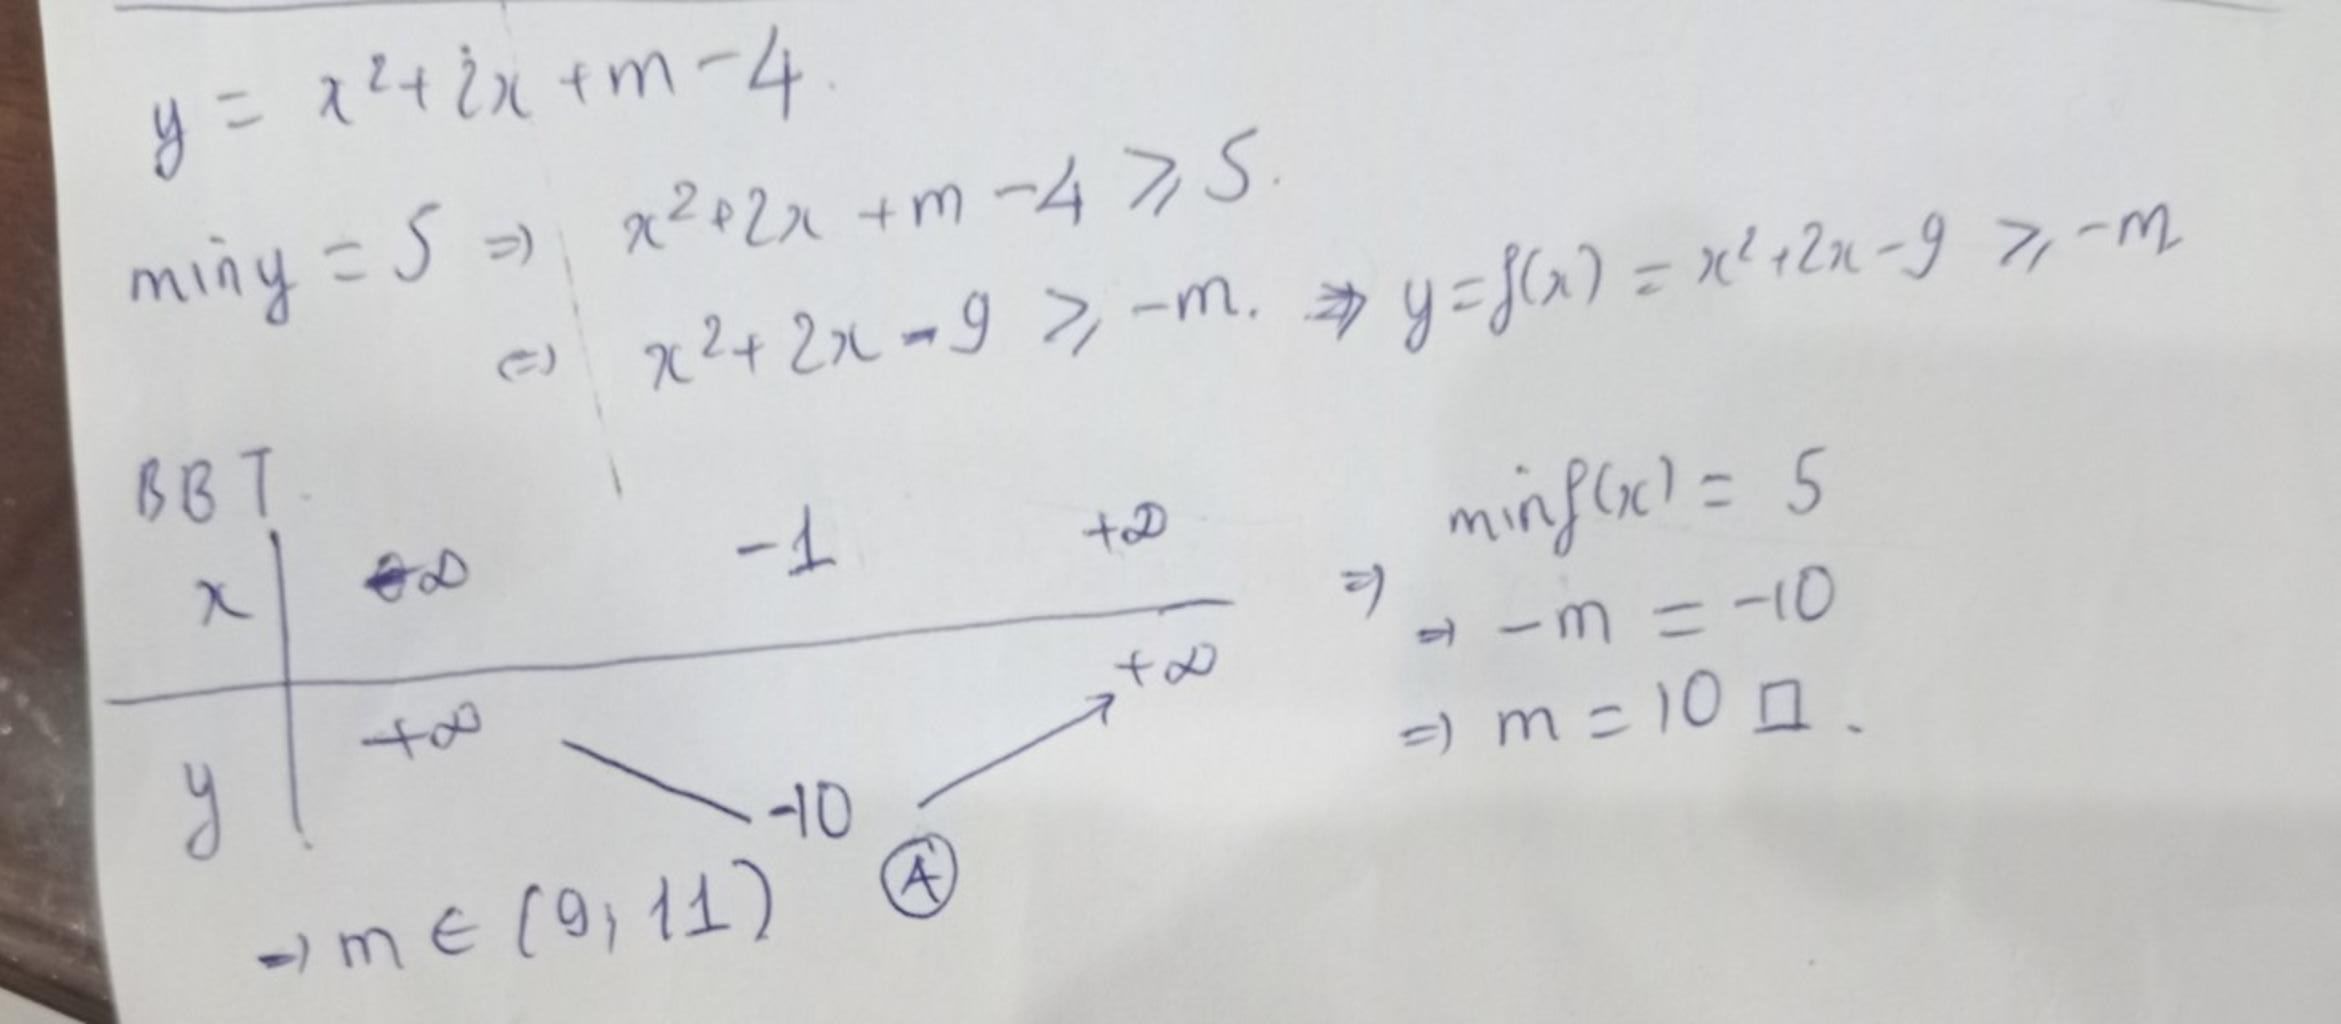 y = x² + 2x + m - 4.
min y = 5 => x² + 2x + m - 4 ⩾ 5.
<=> x² + 2x - 9 ⩾ -m. => y = f(x) = x² + 2x - 9 ⩾ -m
BBT
x -∞ -1 +∞
y +∞ -10 +∞
=> m ∈ (9; 11) Ⓐ
min f(x) = 5
=> => -m = -10
=> m = 10 □.